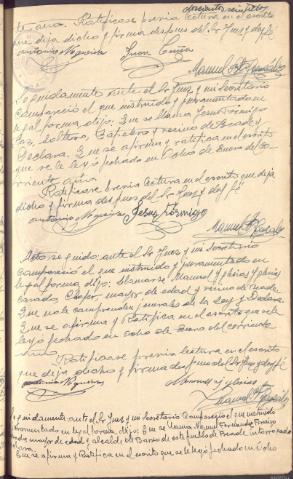 to año. Ratificase previa lectura en el escrito
que dejo dicho y firma despues del Sr Juez y doy fé
Antonio Nogueira Juan
Manuel
Seguidamente ante el Sr Juez y mi Secretario
Compareció el que instruido y juramentado en
legal forma dijo: Que se llama Jesus Formigo
Paz, Soltero, y vecino de y
Declara: Que se afirma y ratifica en el escrito
que se le leyó fechado en Ocho de Enero del Co-
rriente año
Ratificase previa lectura en el escrito que deja
dicho y firma despues del Sr Juez y doy fé
Antonio Nogueira Jesus Formigo
Manuel
Acto seguido ante el Sr Juez y mi Secretario
compareció el que instruido y juramentado en
legal forma, dijo: Llamarse Manuel Yglesias Yglesias
Casado, Chofer, mayor de edad y vecino de
Que no le comprenden generales de la Ley y Declara:
Que se afirma y Ratifica en el escrito que se le
leyó fechado en Ocho de Enero del corriente
año
Ratificase previa lectura en el escrito
que deja dicho y firma despues del Sr Juez y doy fé
Antonio Nogueira Manuel Yglesias
Manuel
Seguidamente ante el Sr Juez y mi Secretario Compareció el que instruido
y juramentado en legal forma, dijo: Que se llama Manuel Fernandez
mayor de edad y alcalde de Barrio de este pueblo de interrogado
Declara
Que se afirma y Ratifica en el escrito que se le leyó fechado en Ocho